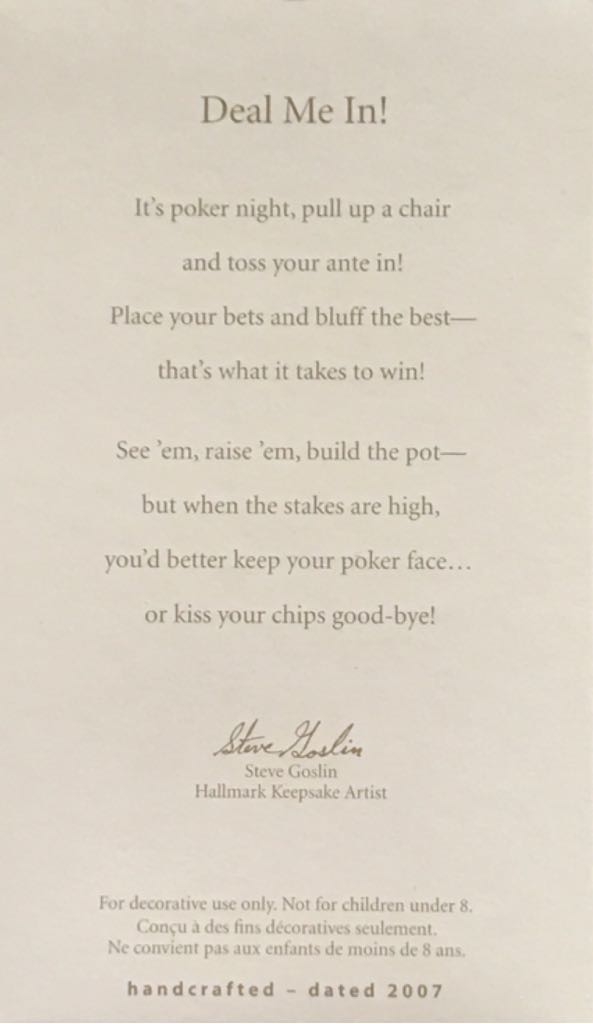 Deal Me In!
It's poker night, pull up a chair
and toss your ante in!
Place your bets and bluff the best—
that's what it takes to win!
See 'em, raise 'em, build the pot—
but when the stakes are high,
you'd better keep your poker face...
or kiss your chips good-bye!
Steve Goslin
Steve Goslin
Hallmark Keepsake Artist
For decorative use only. Not for children under 8.
Conçu à des fins décoratives seulement.
Ne convient pas aux enfants de moins de 8 ans.
handcrafted – dated 2007